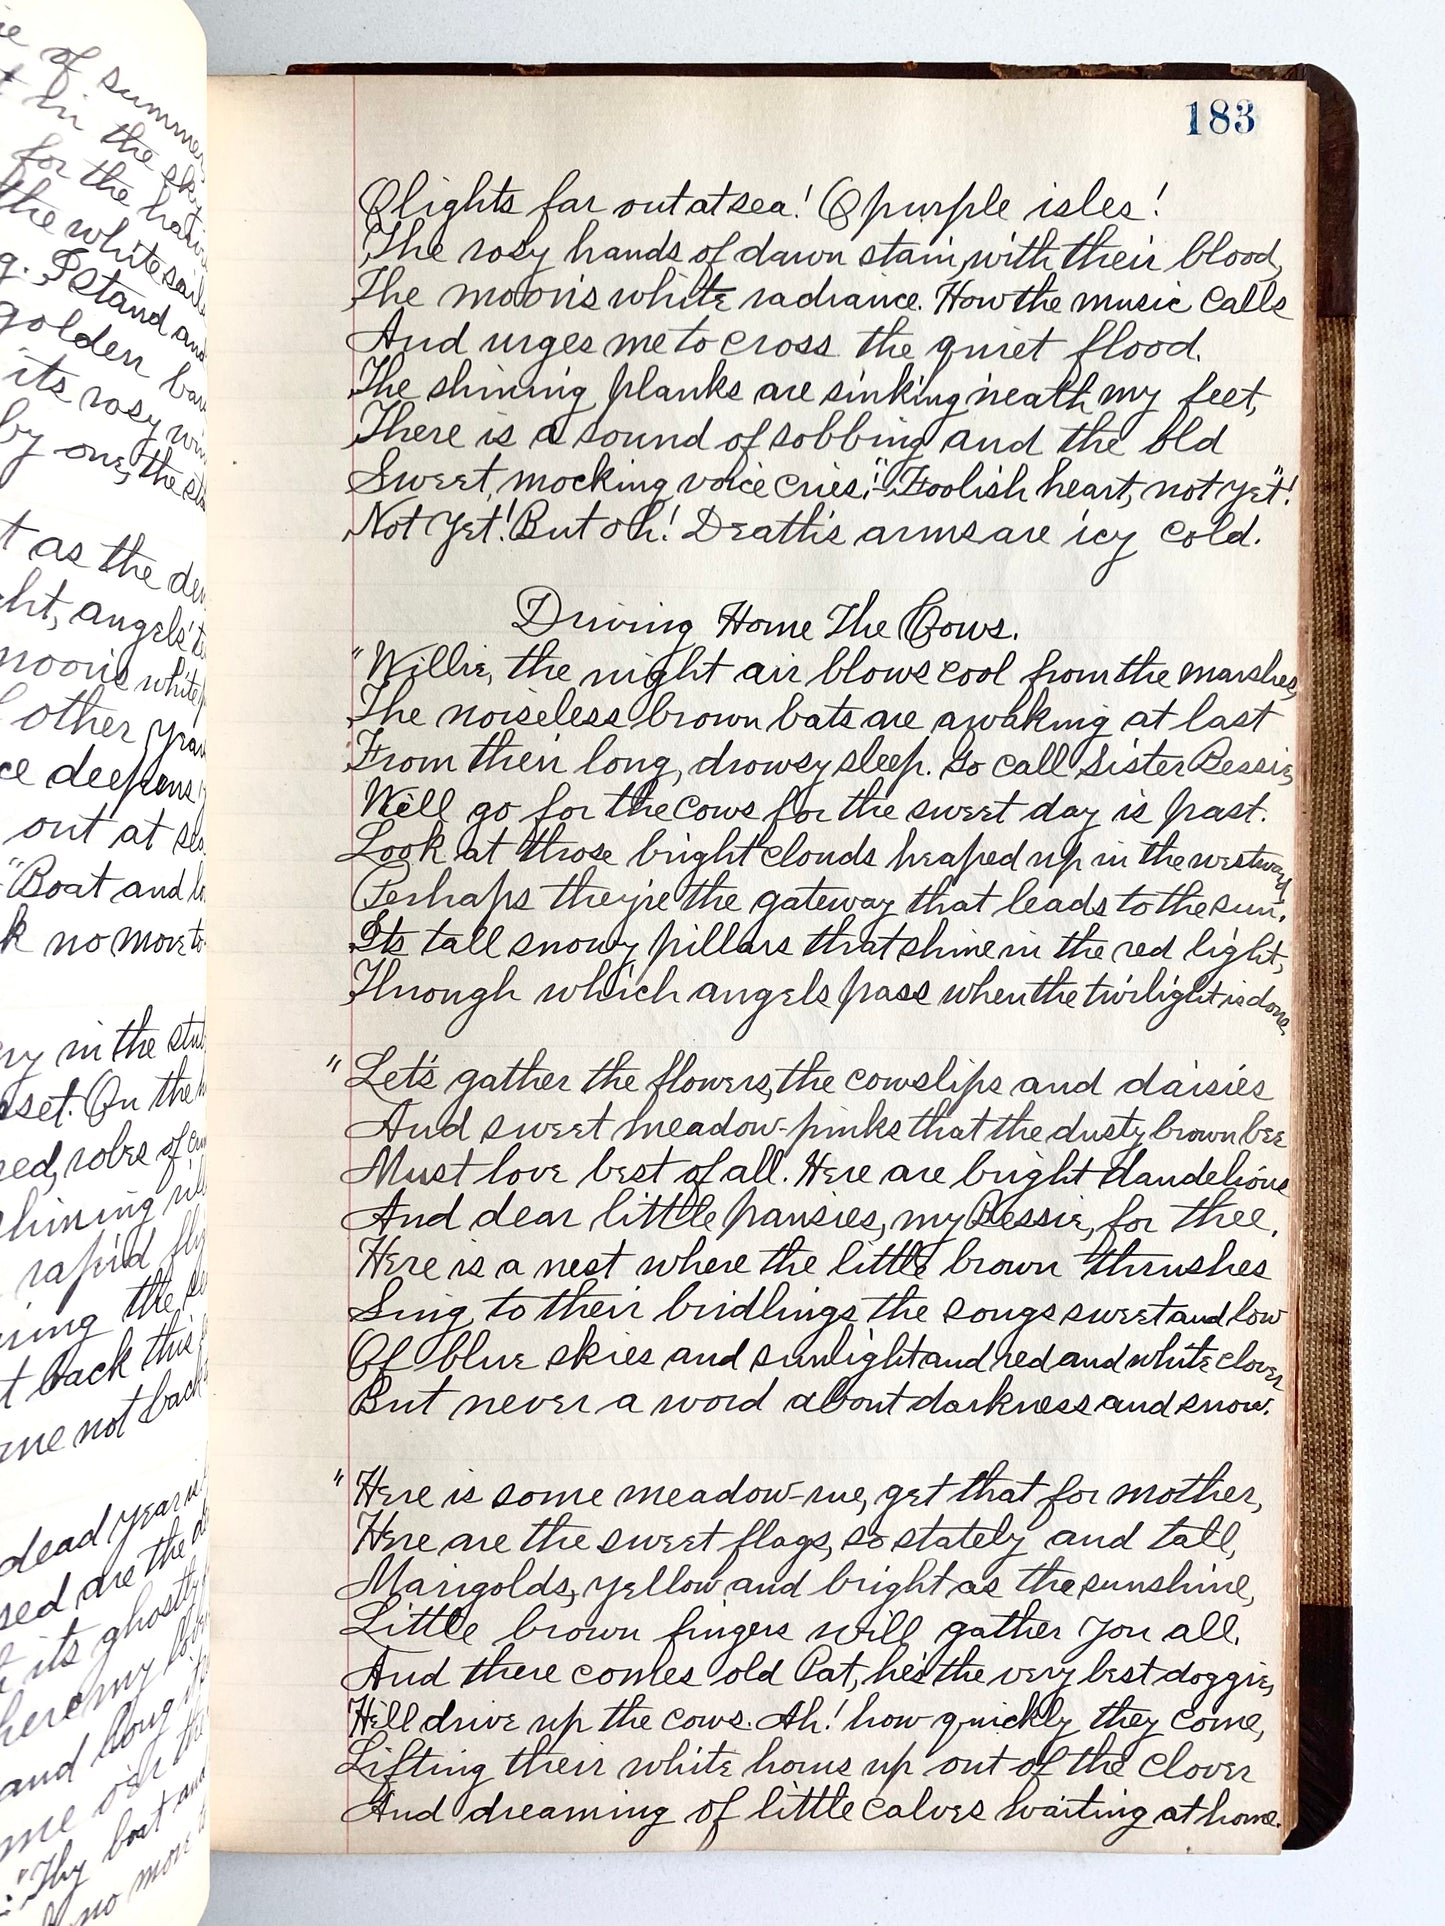 ie of summer
t in the sky
for the harv
the white sail
g. I stand and
golden bars
its rosy win
by one, the sta
t as the den
ght, angels' t
moon's white
l other years
ce deepens
out at sea
"Boat and
k no more to
ry in the stu
nset. On the
red, robes of
shining
rapid fly
ring the
t back this
me not back
dead years
sed are the
its ghostly
here my
and long
me o'er the
"Thy boat and
no more
183
O lights far out at sea! O purple isles!
The rosy hands of dawn stain, with their blood,
The moon's white radiance. How the music calls
And urges me to cross the quiet flood.
The shining planks are sinking 'neath my feet,
There is a sound of sobbing and the old
Sweet, mocking voice cries:- "Foolish heart, not yet"!
Not yet! But oh! Death's arms are icy cold.
Driving Home The Cows.
"Willie, the night air blows cool from the marshes,
The noiseless brown bats are awaking at last
From their long, drowsy sleep. Go call Sister Bessie,
We'll go for the cows for the sweet day is past.
Look at those bright clouds heaped up in the westward,
Perhaps they're the gateway that leads to the sun.
Its tall snowy pillars that shine in the red light,
Through which angels pass when the twilight is done,
"Let's gather the flowers, the cowslips and daisies
And sweet meadow-pinks that the dusty brown bee
Must love best of all. Here are bright dandelions
And dear little pansies, my Bessie, for thee.
Here is a nest where the little brown thrushes
Sing to their birdlings the songs sweet and low
Of blue skies and sunlight and red and white clover
But never a word about darkness and snow.
"Here is some meadow-rue, get that for mother,
Here are the sweet flags, so stately and tall,
Marigolds, yellow and bright as the sunshine,
Little brown fingers will gather you all.
And there comes old Pat, he's the very best doggie,
He'll drive up the cows. Ah! how quickly they come,
Lifting their white horns up out of the clover
And dreaming of little calves waiting at home.